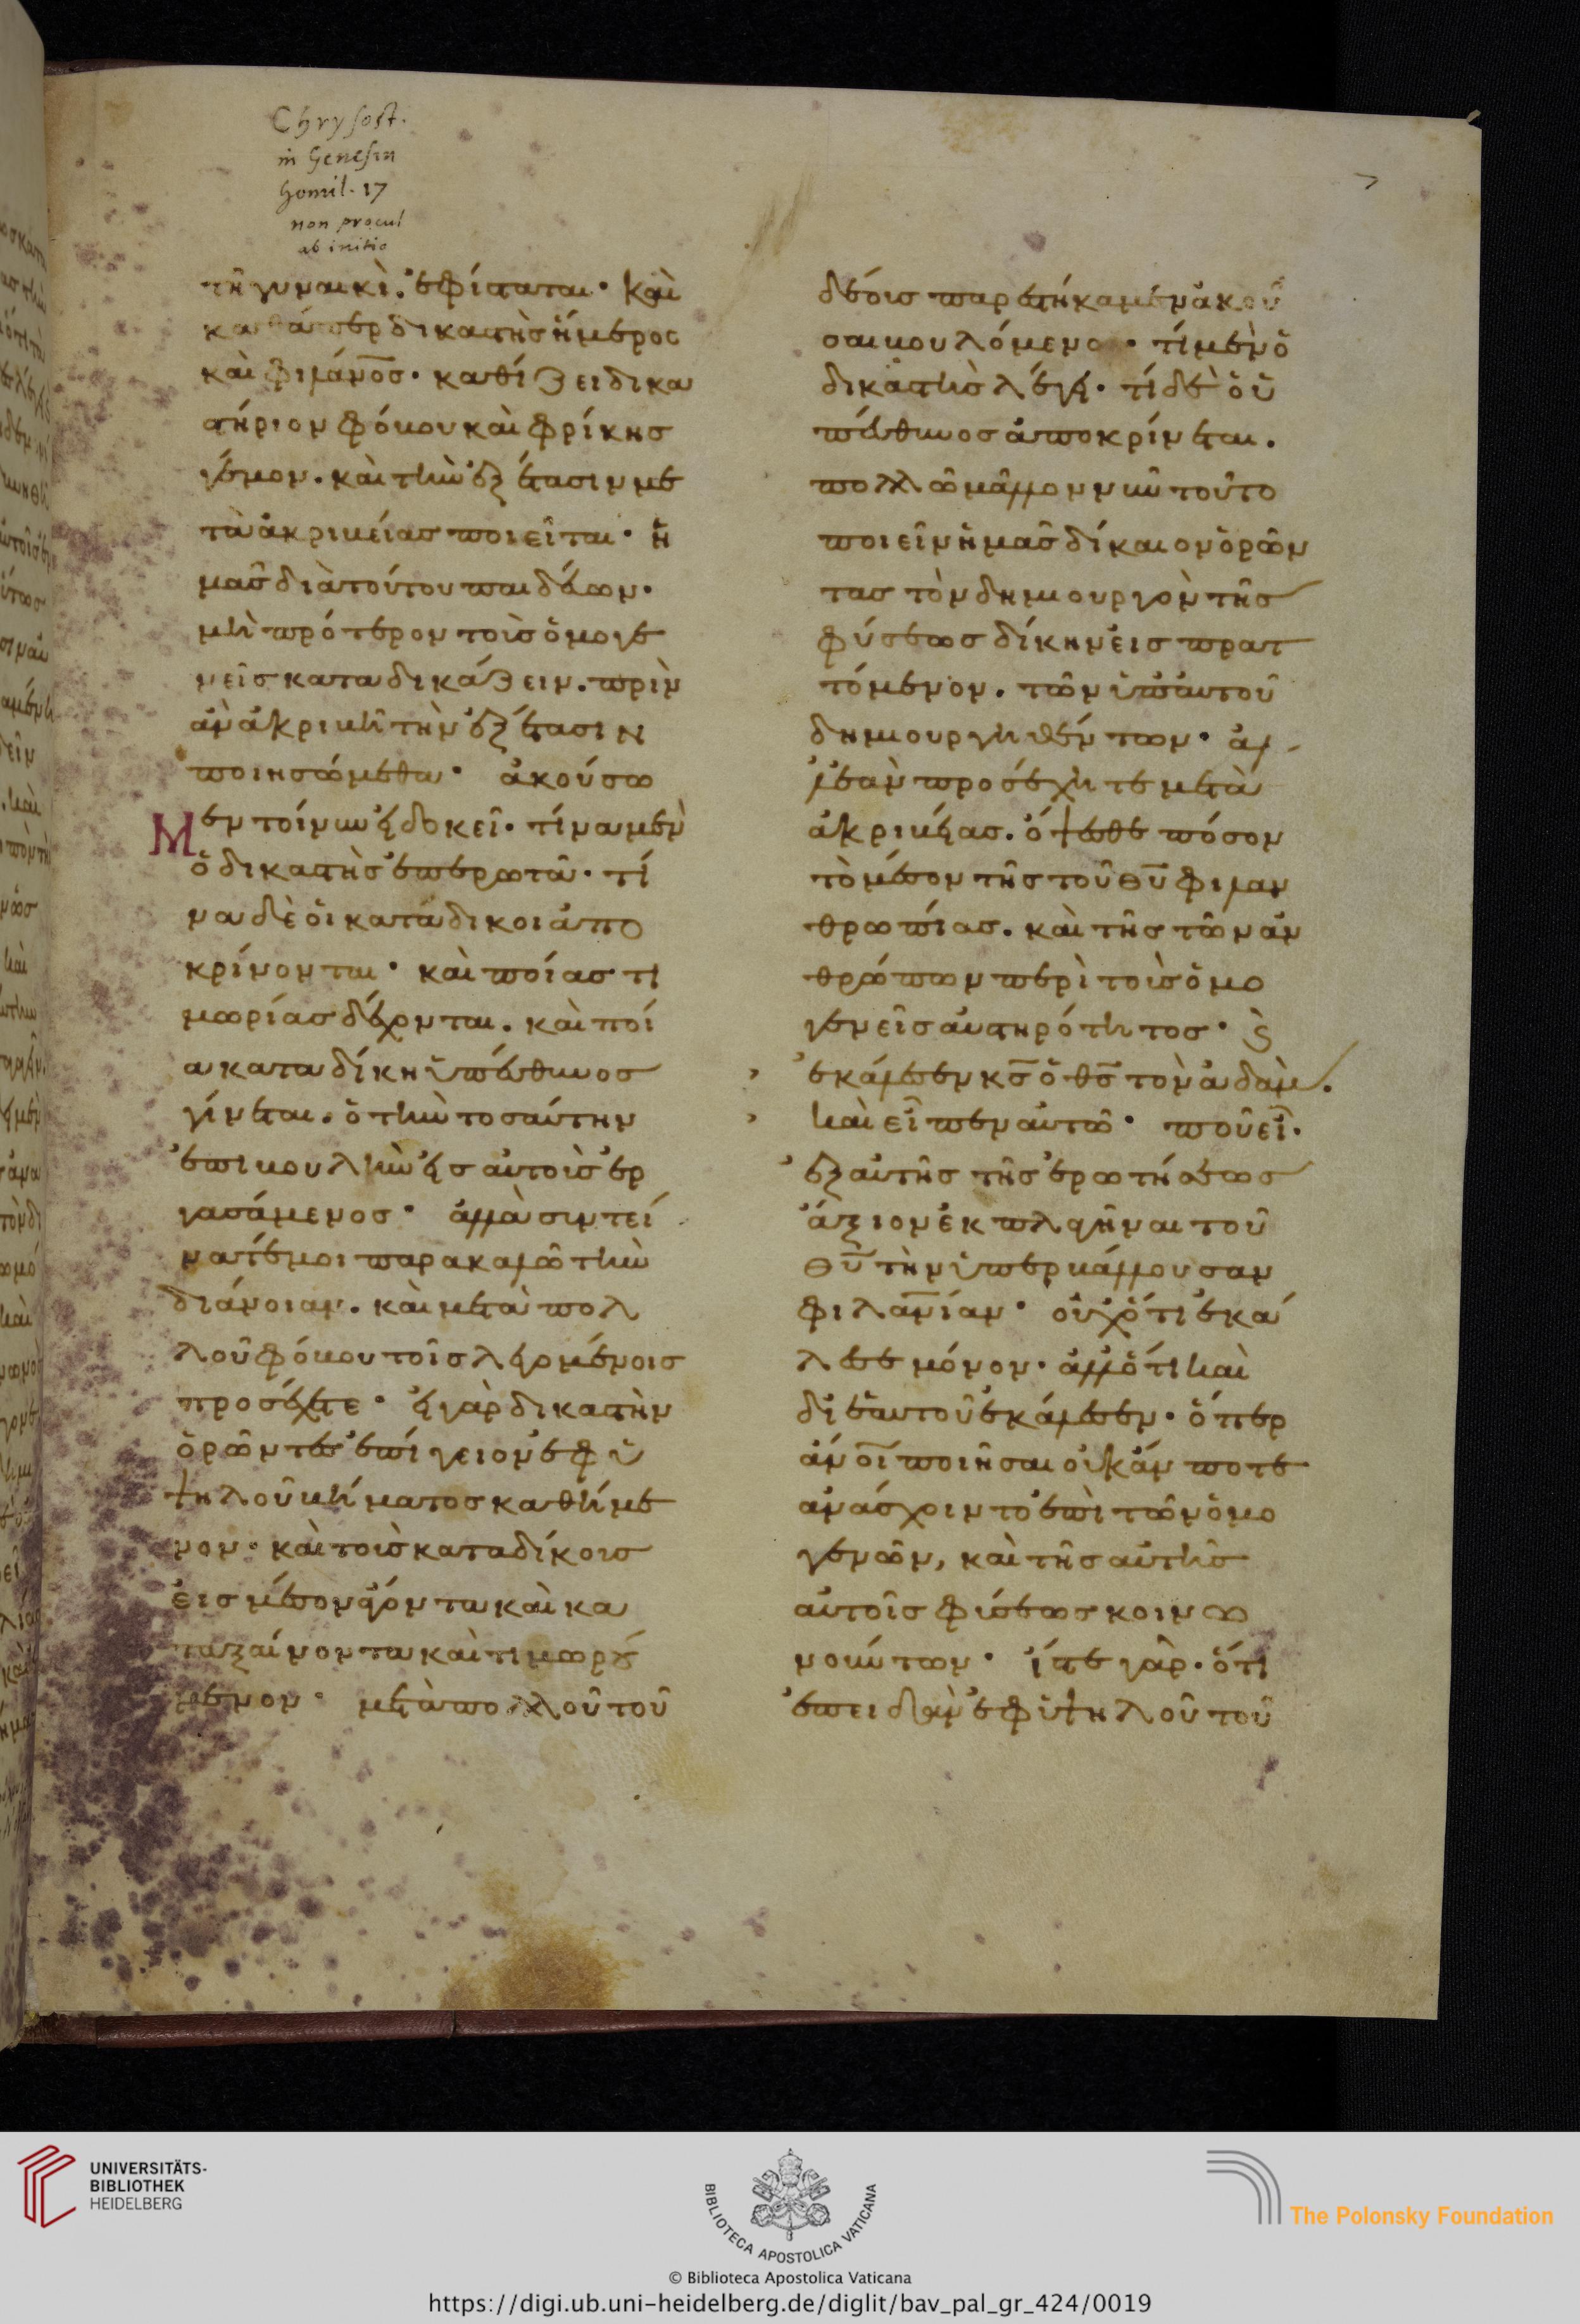 Chrysost.
in Genesin
homil. 17
non procul
ab initio
7
τῆ γυναικὶ. ἐφίσταται· καὶ
καθάπερ δικαστὴς ἥμερος
καὶ φιλάνο̅σ· καθίζει δικα
στήριον φόβου καὶ φρίκης
γέμον. καὶ τὴν ἐξέτασιν με
τὰ ἀκριβείας ποιεῖται· ἡ
μᾶς διὰ τούτου παιδεύων·
μὴ πρότερον τοῖς ὁμογε
νεῖς καταδικάζειν. πρὶν
ἀν ἀκριβῆ τὴν ἐξέτασιν
ποιησώμεθα· ἀκούσω
Μεν τοίνυν εἰ δοκεῖ· τίνα μὲν
ὁ δικαστὴς ἐπερωτᾶ· τί
να δὲ οἱ κατάδικοι ἀπο
κρίνονται· καὶ ποίας τι
μωρίας δέχονται. καὶ ποί
α καταδίκη ὑπεύθυνος
γίνεται. ὁ τὴν τοσαύτην
ἐπιβουλὴν εἰς αὐτοὺς ἐρ
γασάμενος· ἀλλὰ συντεί
νατέ μοι παρακαλῶ τὴν
διάνοιαν. καὶ μετὰ πολ
λοῦ φόβου τοῖς λεγομένοις
προσέχετε· εἰ γὰρ δικαστὴν
ὁρῶντες ἐπίγειον ἐφ ὑ
ψηλοῦ βήματος καθήμε
νον· καὶ τοὺς καταδίκους
εἰς μέσον ἄγοντα καὶ κα
ταξαίνοντα καὶ τιμωρού
μενον· μετὰ πολλοῦ τοῦ
δέους παρεστήκαμεν ἀκοῦ
σαι βουλόμενοι· τί μὲν ὁ
δικαστὴς λέγει· τί δὲ ὁ ὑ
πεύθυνος ἀποκρίνεται.
πολλῶ μᾶλλον νῦν τοῦτο
ποιεῖν ἡμᾶς δίκαιον ὁρῶν
τας τὸν δημιουργὸν τῆς
φύσεως δίκην εἰσπρατ
τόμενον. τῶν ὑπ' αὐτοῦ
δημιουργηθέντων· ἀλ
λ' ἐὰν προσέχητε μετὰ
ἀκριβείας. ὄψεσθε πόσον
τὸ μέσον τῆς τοῦ θυ̅ φιλαν
θρωπίας. καὶ τῆς τῶν ἀν
θρώπων περὶ τοὺς ὁμο
γενεῖς αὐστηρότητος· ϗ
ἐκάλεσεν κς̅ ὁ θς̅ τὸν ἀδὰμ.
καὶ εἶπεν αὐτῶ· ποῦ εἶ·
ἐξ αὐτῆς τῆς ἐρωτήσεως
ἄξιον ἐκπλαγῆναι τοῦ
θυ̅ τὴν ὑπερβάλλουσαν
φιλανίαν· οὐχ ὅτι ἐκά
λεσε μόνον· ἀλλ' ὅτι καὶ
δι ἑαυτοῦ ἐκάλεσεν· ὅπερ
ἀν οἱ ποιῆσαι οὐκ ἄν ποτε
ἀνάσχοιντο ἐπὶ τῶν ὁμο
γενῶν, καὶ τῆς αὐτῆς
αὐτοῖς φύσεως κοινω
νούντων· ἴστε γὰρ. ὅτι
ἐπειδὰν ἐφ ὑψηλοῦ τοῦ
UNIVERSITÄTS-
BIBLIOTHEK
HEIDELBERG
BIBLIOTECA APOSTOLICA VATICANA
The Polonsky Foundation
© Biblioteca Apostolica Vaticana
https://digi.ub.uni-heidelberg.de/diglit/bav_pal_gr_424/0019